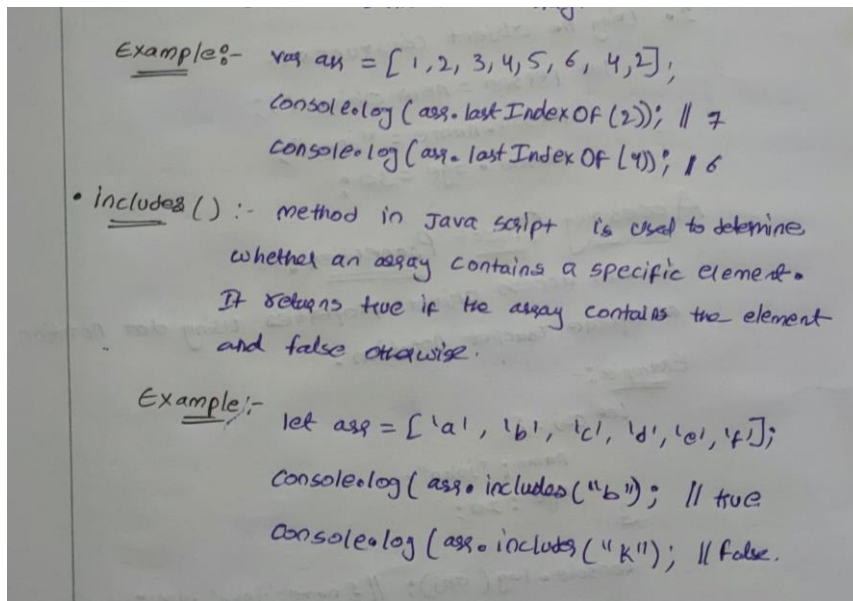 Example:- var arr = [1,2,3,4,5,6,4,2];
console.log(arr.lastIndexOf(2)); // 7
console.log(arr.lastIndexOf(4)); // 6
• includes() :- method in Java script is used to detemine
whether an array contains a specific element.
It returns true if the array contains the element
and false otherwise.
Example:-
let arr = ['a', 'b', 'c', 'd', 'e', 'f'];
console.log(arr.includes("b"); // true
console.log(arr.includes("k"); // false.